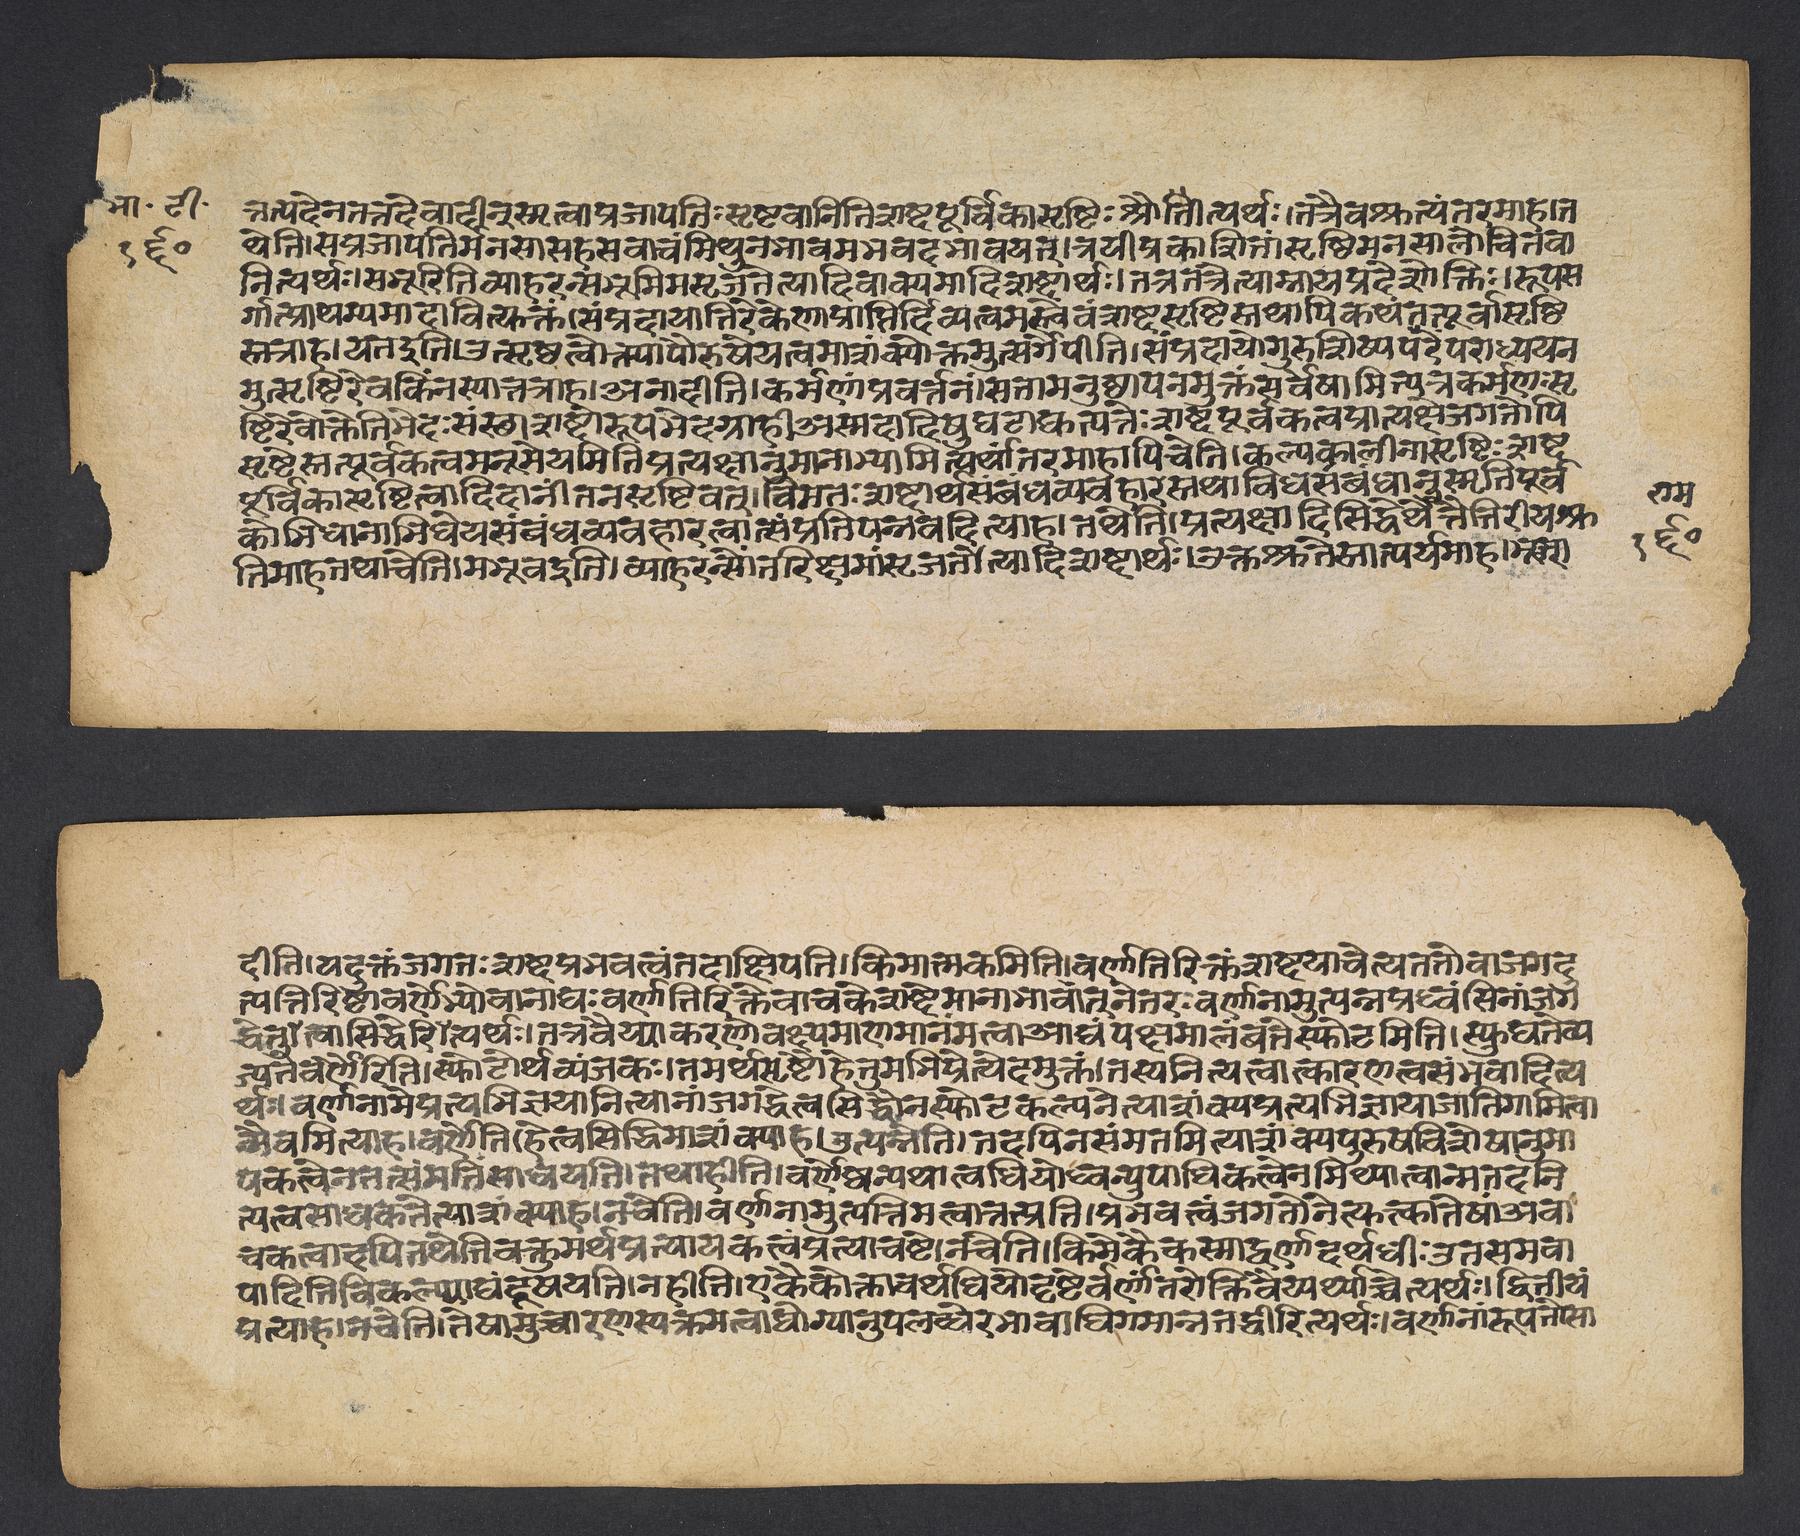 भा॰ टी॰
१६०
त्तत्पदेनतत्तद्देवादीनुस्मृत्वाप्रजापतिःसृष्टवानितिशब्दपूर्विकासृष्टिःश्रौतीत्यर्थः।तत्रैवश्रुत्यंतरमाह।त
थेति।सप्रजापतिर्मनसासहसवाचंमिथुनभावमभवदभावयत्।त्रयीप्रकाशितांसृष्टिंमनसालोचितवा
नित्यर्थः।सभूरितिव्याहरन्सभूमिमसृजतेत्यादिवाक्यमादिशब्दार्थः।तत्रतत्रेत्याम्नायप्रदेशोक्तिः।रूपस
र्गात्प्राथम्यमादावित्युक्तं।संप्रदायातिरेकेणाप्राप्तिर्दिव्यत्वमस्त्वेवंशब्दसृष्टिस्तथापिकथंतत्पूर्वासृष्टि
स्तत्राह।यतइति।उत्सृष्टत्वोक्त्यापौरुषेयत्वमाशंक्योक्तमुत्सर्गेपीति।संप्रदायोगुरुशिष्यपरंपराध्ययन
मुत्सृष्टिरेवकिंनस्यात्तत्राह।अनादीति।कर्मणांप्रवर्त्तनंसतामनुष्ठापनमुक्तंसर्वेषामित्यत्रकर्मणःसृ
ष्टिरेवोक्तेतिभेदःसंस्थाशब्दोरूपभेदग्राहीअस्मदादिषुघटाद्युत्पत्तेःशब्दपूर्वकत्वप्रात्यक्ष्येजगतोपि
सृष्टेस्तत्पूर्वकत्वमनुमेयमितिप्रत्यक्षानुमानाभ्यामित्यर्थांतरमाहापिचेति।कल्पकालीनासृष्टिःशब्द
पूर्विकासृष्टित्वादिदानींतनसृष्टिवत्।विमतःशब्दार्थसंबंधव्यवहारस्तथाविधसंबंधानुस्मृतिपूर्व
कोभिधानाभिधेयसंबंधव्यवहारत्वात्संप्रतिपन्नवदित्याह।तथेति।प्रत्यक्षादिसिद्धेर्थेतैत्तिरीयश्रु
तिमाहतथाचेति।भभूवइति।व्याहरन्सोंतरिक्षमांसृजतेत्यादिशब्दार्थः।उक्तश्रुतेस्तात्पर्यमाह।भूरा
राम
१६०
दीति।यदुक्तंजगतःशब्दप्रभवत्वंतदाक्षिपति।किमात्मकमिति।वर्णातिरिक्तंशब्दयावेत्यततोवाजगदु
त्पत्तिरिष्टावर्णेभ्योवानाद्यःवर्णातिरिक्तेवाचकेशब्देमानाभावात्नेतरःवर्णानामुत्पन्नप्रध्वंसिनांजग
द्धेतुत्वासिद्धेरित्यर्थः।तत्रवैय्याकरणोवक्ष्यमाणमानंमत्वाआद्यंपक्षमालंबतेस्फोटमिति।स्फुट्यतेव्य
ज्यतेवर्णैरिति।स्फोटोर्थव्यंजकः।तमर्थसृष्टौहेतुमभिप्रेत्येदमुक्तं।तस्यनित्यत्वात्कारणत्वसंभवादित्य
र्थः।वर्णानामप्रत्यभिज्ञयानित्यानांजगद्धेत्वसिद्धौनस्फोटकल्पनेत्याशंक्यप्रत्यभिज्ञायाजातिगामित्वा
न्नैवमित्याह।वर्णेति।हेत्वसिद्धिमाशंक्याह।उत्पन्नेति।तदपिनसंमतमित्याशंक्यपुरुषविशेषानुमा
पकत्वेनतत्संमतिंसाधयति।तथाहीति।वर्णेष्वन्यथात्वधियोध्वन्युपाधिकत्वेनमिथ्यात्वान्मतदनि
त्यत्वसाधकतेत्याशंक्याह।नचेति।वर्णानामुत्पत्तिमत्वात्तत्प्रति।प्रभवत्वंजगतोनेत्युक्त्वातेषांअवा
चकत्वादपितथेतिवक्तुमर्थप्रत्यायकत्वंप्रत्याचष्टे।नचेति।किमेकैकस्माद्वर्णादर्थधीःउतसमवा
यादितिविकल्प्याद्यंदूषयति।नहीति।एकैकोक्तावर्थधियोदृष्टेर्वर्णांतरोक्तिवैयर्थ्याच्चेत्यर्थः।द्वितीयं
प्रत्याह।नचेति।तेषामुच्चारणस्यक्रमत्वाद्योग्यानुपलब्धेरभावाधिगमान्नतद्धीरित्यर्थः।वर्णानांरूपतोसा